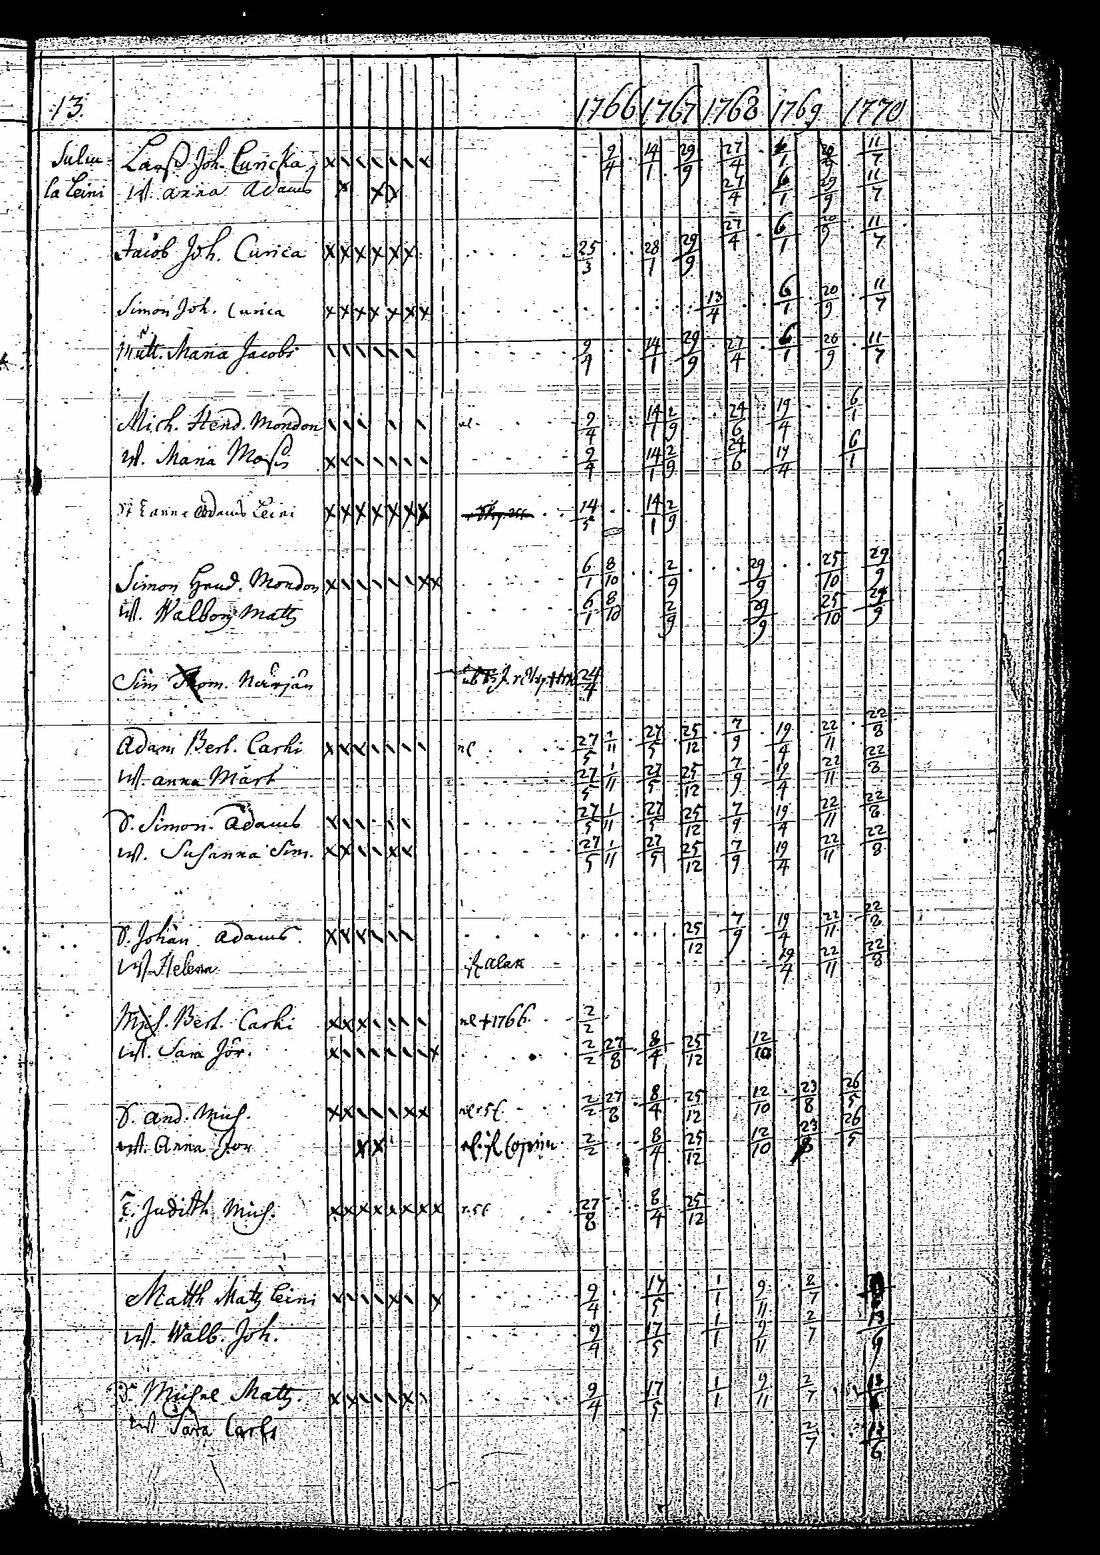 13. 1766 1767 1768 1769 1770
Lars Joh. Curicka 9/4 14/1 29/9 27/4 6/1 20/9 11/7
la Leini W. Anna Adams 27/4 6/1 29/9 11/7
Jacob Joh. Curica 25/3 28/1 29/9 27/4 6/1 20/9 11/7
Simon Joh. Curica 13/4 6/1 20/9 11/7
Mutt. Maria Jacobs 9/4 14/1 29/9 27/4 6/1 20/9 11/7
Mich. Hend. Mondon 9/4 14/1 2/9 24/6 19/4 6/1
W. Maria Mosis 9/4 14/1 2/9 24/6 17/4 6/1
Anna Adams Leini 14/5 14/1 2/9
Simon Hend. Mondon 6/1 8/10 2/9 29/9 25/10 29/9
W. Walborg Matts 6/1 8/10 2/9 29/9 25/10 29/9
Sim Thom. Närjän 24/4
Adam Bert. Carki nl 27/5 1/11 27/5 25/12 7/9 19/4 22/11 22/8
W. Anna Märt 27/5 1/11 27/5 25/12 7/9 19/4 22/11 22/8
S. Simon Adams 27/5 1/11 27/5 25/12 7/9 19/4 22/11 22/8
W. Susanna Sim. 27/5 1/11 27/5 25/12 7/9 19/4 22/11 22/8
S. Johan Adams 25/12 7/9 19/4 22/11 22/8
W. Helena 19/4 22/11 22/8
Mich. Bert. Carki nl +1766 2/2
W. Sara Jör. 2/2 27/8 8/4 25/12 12/10
S. And. Mich. 2/2 27/8 8/4 25/12 12/10 23/8 26/5
W. Anna Jör 2/2 8/4 25/12 12/10 23/8 26/5
Judith Mich. 27/8 8/4 25/12
Matth Matts Leini 9/4 17/5 1/1 9/11 2/7
W. Walb. Joh. 9/4 17/5 1/1 9/11 2/7 13/6
S. Michel Matts. 9/4 17/5 1/1 9/11 2/7
W Sara Carls 2/7 13/6